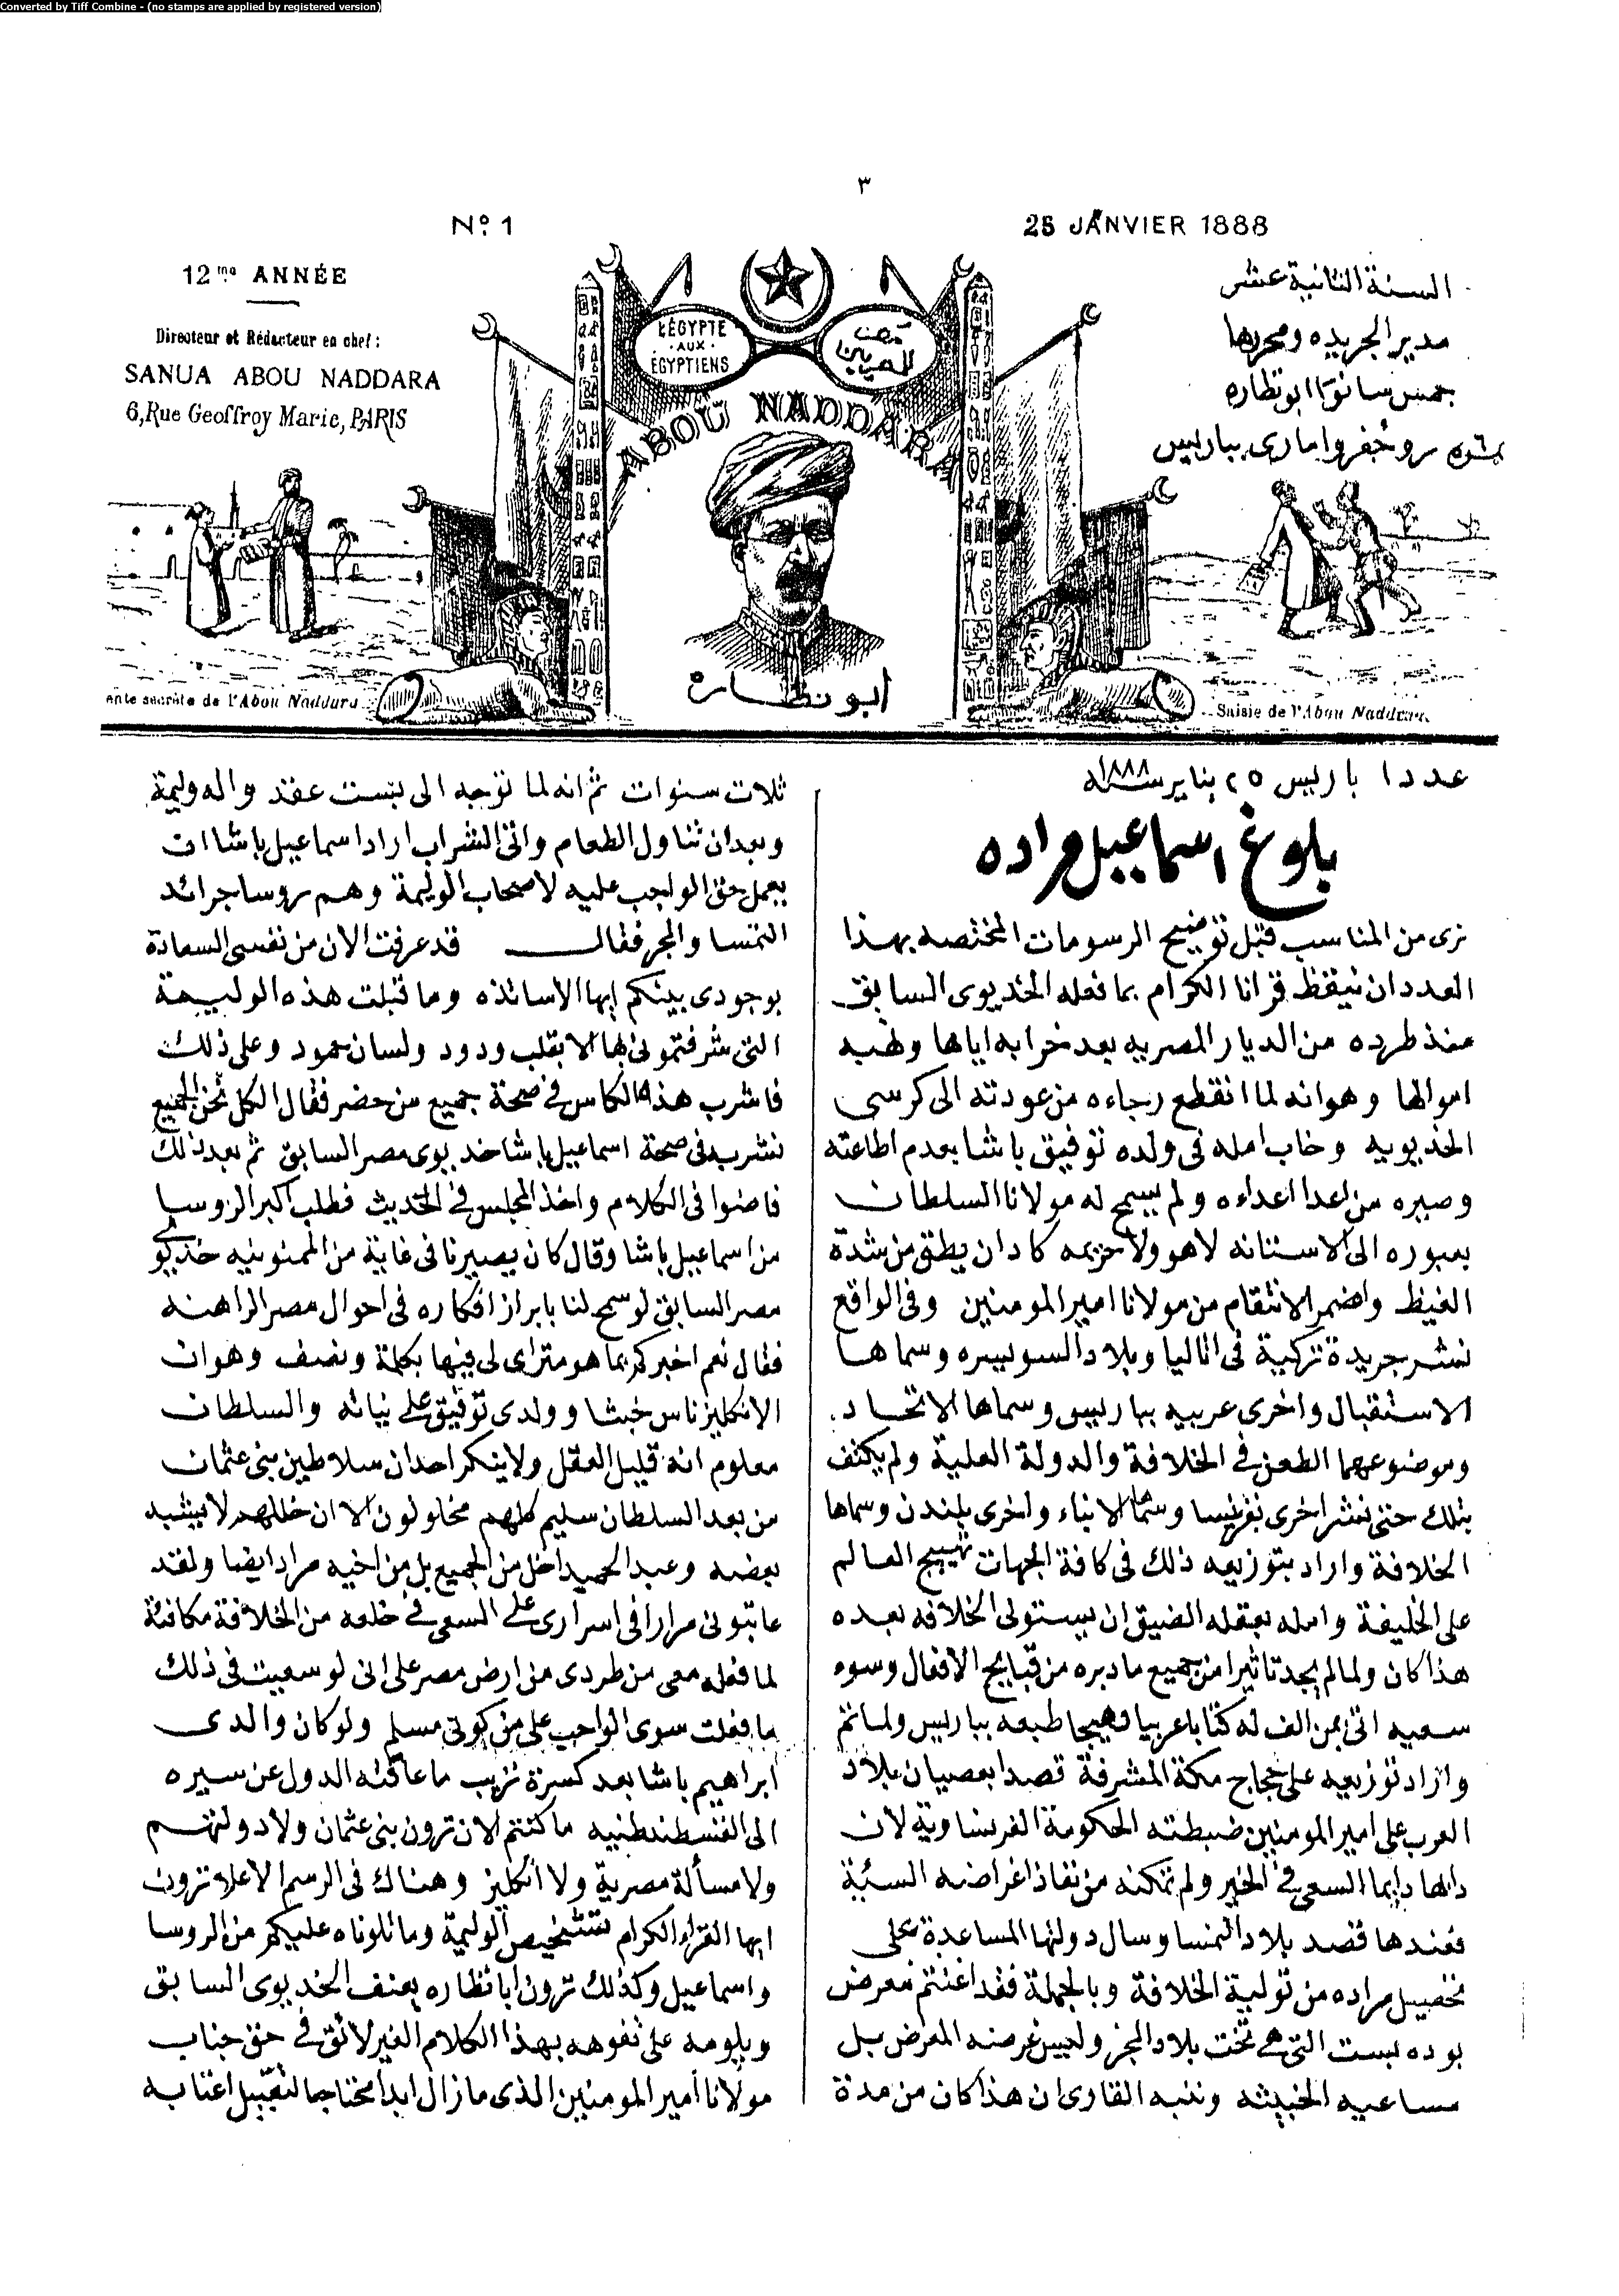 Converted by Tiff Combine - (no stamps are applied by registered version)
٣
Nº. 1
25 JANVIER 1888
12me ANNÉE
Directeur et Rédacteur en chef:
SANUA ABOU NADDARA
6, Rue Geoffroy Marie, PARIS
L'ÉGYPTE
AUX
ÉGYPTIENS
مصر
للمصريين
ABOU NADDARA
السنة الثانية عشر
مدير الجريده ومحررها
جمس سانوا ابو نظاره
نمرة ٦ رو جفروا مارى بباريس
ente secrète de l'Abou Naddara
ابو نظاره
Saisie de l'Abou Naddara
عدد ١ باريس ٢٥ يناير سنة ١٨٨٨
بلوغ اسماعيل مراده
نرى من المناسب قبل توضيح الرسومات المختصه بهذا
العدد ان نيقظ قرانا الكرام بما فعله الخديوى السابق
منذ طرده من الديار المصريه بعد خرابه اياها ونهبه
اموالها وهو انه لما انقطع رجاءه من عودته الى كرسى
الخديويه وخاب امله فى ولده توفيق باشا بعدم اطاعته
وصيره من اعدا اعداءه ولم يسمح له مولانا السلطان
بعبوره الى الاستانه لا هو ولا حزيمه كاد ان يطق من شدة
الغيظ واضمر الانتقام من مولانا امير المومنين وفى الواقع
نشر جريدة تركية فى اناليا وبلاد السويسره وسماها
الاستقبال واخرى عربيه بباريس وسماها الاتحاد.
وموضوعهما الطعن فى الخلافة والدولة العلية ولم يكتف
بتلك حتى نشر اخرى بفرنسا وسماها الانباء واخرى بلندن وسماها
الخلافة واراد بتوزيعه ذلك فى كافة الجهات تهييج العالم
على الخليفة وامله بعقله الضيق ان يستولى الخلافه بعده
هذا كان ولما لم يجد تاثيرا من جميع ما دبره من قبايح الافعال وسوء
سعيه اتى بمن الف له كتابا عربيا وهيجا طبعه بباريس ولما تم
واراد توزيعه على حجاج مكة المشرفة قصدا بعصيان بلاد
العرب على امير المومنين ضبطته الحكومة الفرنساوية لان
دابها دايما السعى فى الخير ولم تمكنه من نفاذ اغراضه السيئة
فعندها قصد بلاد النمسا وسال دولتها المساعدة على
تحصيل مراده من تولية الخلافة وبالجملة فقد اغتنم معرض
بوده بست التى هى تخت بلاد المجر وليس غرضه المعرض بل
مساعيه الخبيثه وننبه القارى ان هذا كان من مدة
ثلاث سنوات ثم انه لما توجه الى بتست عقد واله وليمة
وبعد ان تناول الطعام واتى الشراب اراد اسماعيل باشا ان
يعمل حق الواجب عليه لاصحاب الوليمة وهم روسا جرائد
النمسا والمجر فقال قد عرفت الان من نفسى السعادة
بوجودى بينكم ايها الاساتذه وما قبلت هذه الوليمة
التى شرفتمونى بها الا بقلب ودود ولسان حمود وعلى ذلك
فاشرب هذا الكاس فى صحة جميع من حضر فقال الكل نحن الجميع
نشرب فى صحة اسماعيل باشا خديوى مصر السابق ثم بعد ذلك
فاضوا فى الكلام واخذ المجلس فى الحديث فطلب اكبر الروسا
من اسماعيل باشا وقال كان يصيرنا فى غاية من الممنونيه خديوى
مصر السابق لو سمح لنا بابراز افكاره فى احوال مصر الراهنه
فقال نعم اخبركم بما هو مترائى لى فيها بكلمة ونصف وهو ان
الانكليز ناس خبثا وولدى توفيق على نياته والسلطان
معلوم انه قليل العقل ولا ينكر احد ان سلاطين بنى عثمان
من بعد السلطان سليم كلهم مخلولون الا ان خللهم لا يشبه
بعضه وعبد الحميد اخل من الجميع بل من اخيه مراد ايضا ولقد
عاتبونى مرارا فى اسرارى على السعى فى خلعه من الخلافة مكافئة
لما فعله معى من طردى من ارض مصر على انى لو سعيت فى ذلك
ما فعلت سوى الواجب على من كونى مسلم ولو كان والدى
ابراهيم باشا بعد كسرة نزيب ما عاقته الدول عن سيره
الى القسطنطنيه ما كنتم الان ترون بنى عثمان ولا دولتهم
ولا مسألة مصرية ولا انكليز وهناك فى الرسم الاعلا ترون
ايها القراء الكرام تشخيص الوليمة وما تلوناه عليكم من الروسا
واسماعيل وكذلك ترون ابا نظاره يعنف الخديوى السابق
ويلومه على تفوهه بهذا الكلام الغير لائق فى حق جناب
مولانا امير المومنين الذى ما زال ابدا محتاجا لتقبيل اعتابه